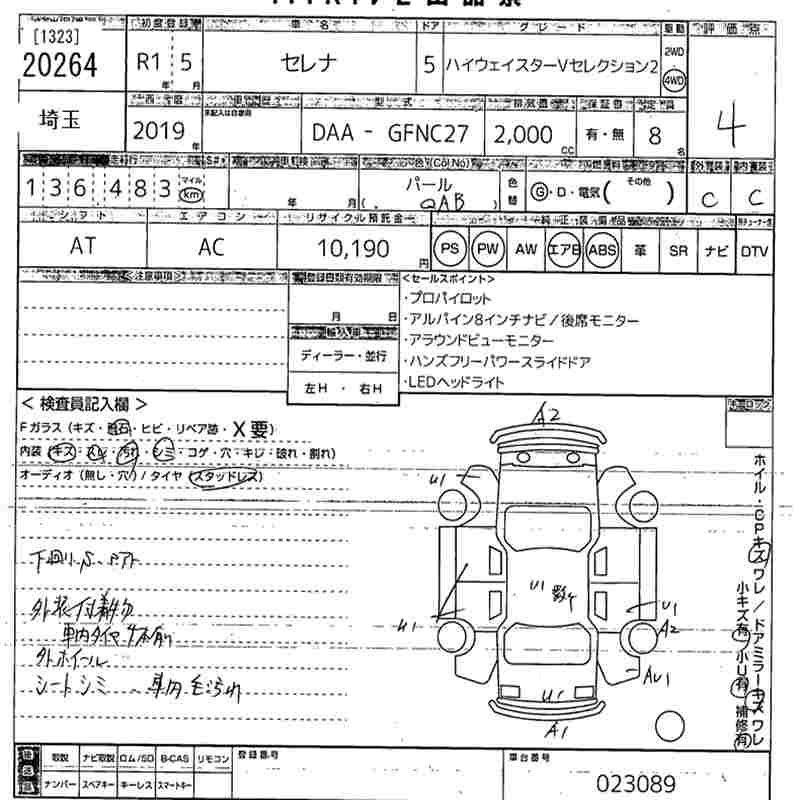 [1323]
20264
初度登録
R1 5
年 月
車名
セレナ
ドア
5
グレード
ハイウェイスターVセレクション2
駆動
2WD
4WD
評価点
4
埼玉
西暦
2019
年
車歴
型式
DAA - GFNC27
排気量
2,000
CC
保証書
有・無
定員
8
名
走行
136,483
マイル
km
年 月
色 (Col.No)
パール
( QAB )
色替
燃料
G・D・電気 ( その他 )
外装
C
内装
C
シフト
AT
エアコン
AC
リサイクル預託金
10,190
円
純正装備品
PS PW AW エアB ABS 革 SR ナビ DTV
<注意事項>
登録書類有効期限
月 日
輸入車
ディーラー・並行
左H ・ 右H
<セールスポイント>
・プロパイロット
・アルパイン8インチナビ/後席モニター
・アラウンドビューモニター
・ハンズフリーパワースライドドア
・LEDヘッドライト
<検査員記入欄>
Fガラス (キズ・飛石・ヒビ・リペア跡・X要)
内装 (キズ・スレ・汚れ・シミ・コゲ・穴・キレ・破れ・割れ)
オーディオ (無し・穴) / タイヤ (スタッドレス)
下廻りS
外装付着物
車内タイヤ4本有
外ホイール
シートシミ 車内毛汚れ
キーロック
A2
U1
U1
U1
U1
A2
AU1
U1
A1
ホイル・CPキズワレ/ドアミラーキズワレ
小キズ有 小U有 補修有
後送品
取説 ナビ取説 ロム/SD B-CAS リモコン
ナンバー スペアキー キーレス スマートキー
登録番号
車台番号
023089